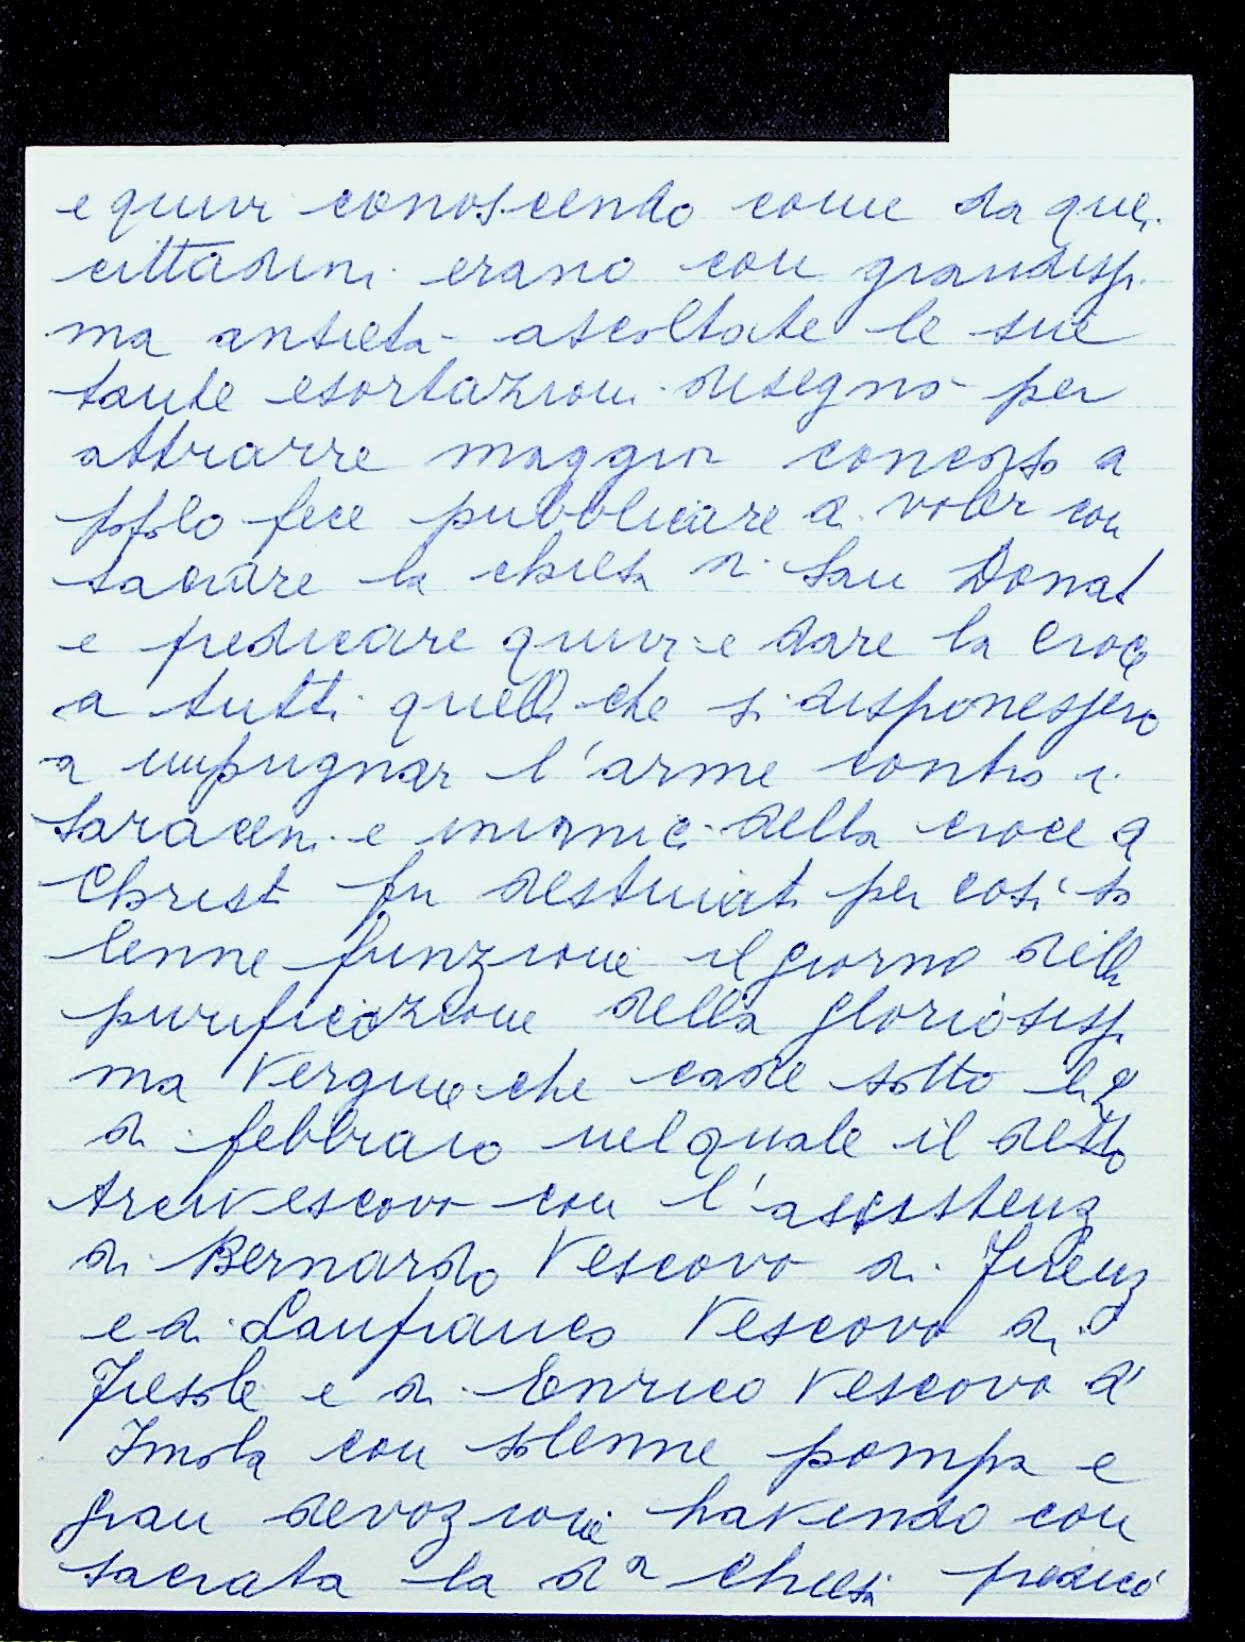 e quivi conoscendo come da quei
cittadini erano con grandissi
ma antietà ascoltate le sue
sante esortazioni disegnò per
attrarre maggior concorso a
popolo fece pubblicare di voler con
sacrare la chiesa di San Donat
e predicare quivi e dare la croce
a tutti quelli che si disponessero
a impugnar l'arme contro i
saraceni e inimici della croce di
Christ fu destinato per così so
lenne funzione il giorno della
purificazione della gloriosissi
ma Vergine che cade sotto li 2
di febbraio nel quale il detto
Arcivescovo con l'assistenz
di Bernardo Vescovo di Firenz
e di Lanfranco Vescovo di
Fiesole e di Enrico Vescovo d'
Imola con solenne pompa e
gran devozione havendo con
sacrata la dᵃ chiesa predicò